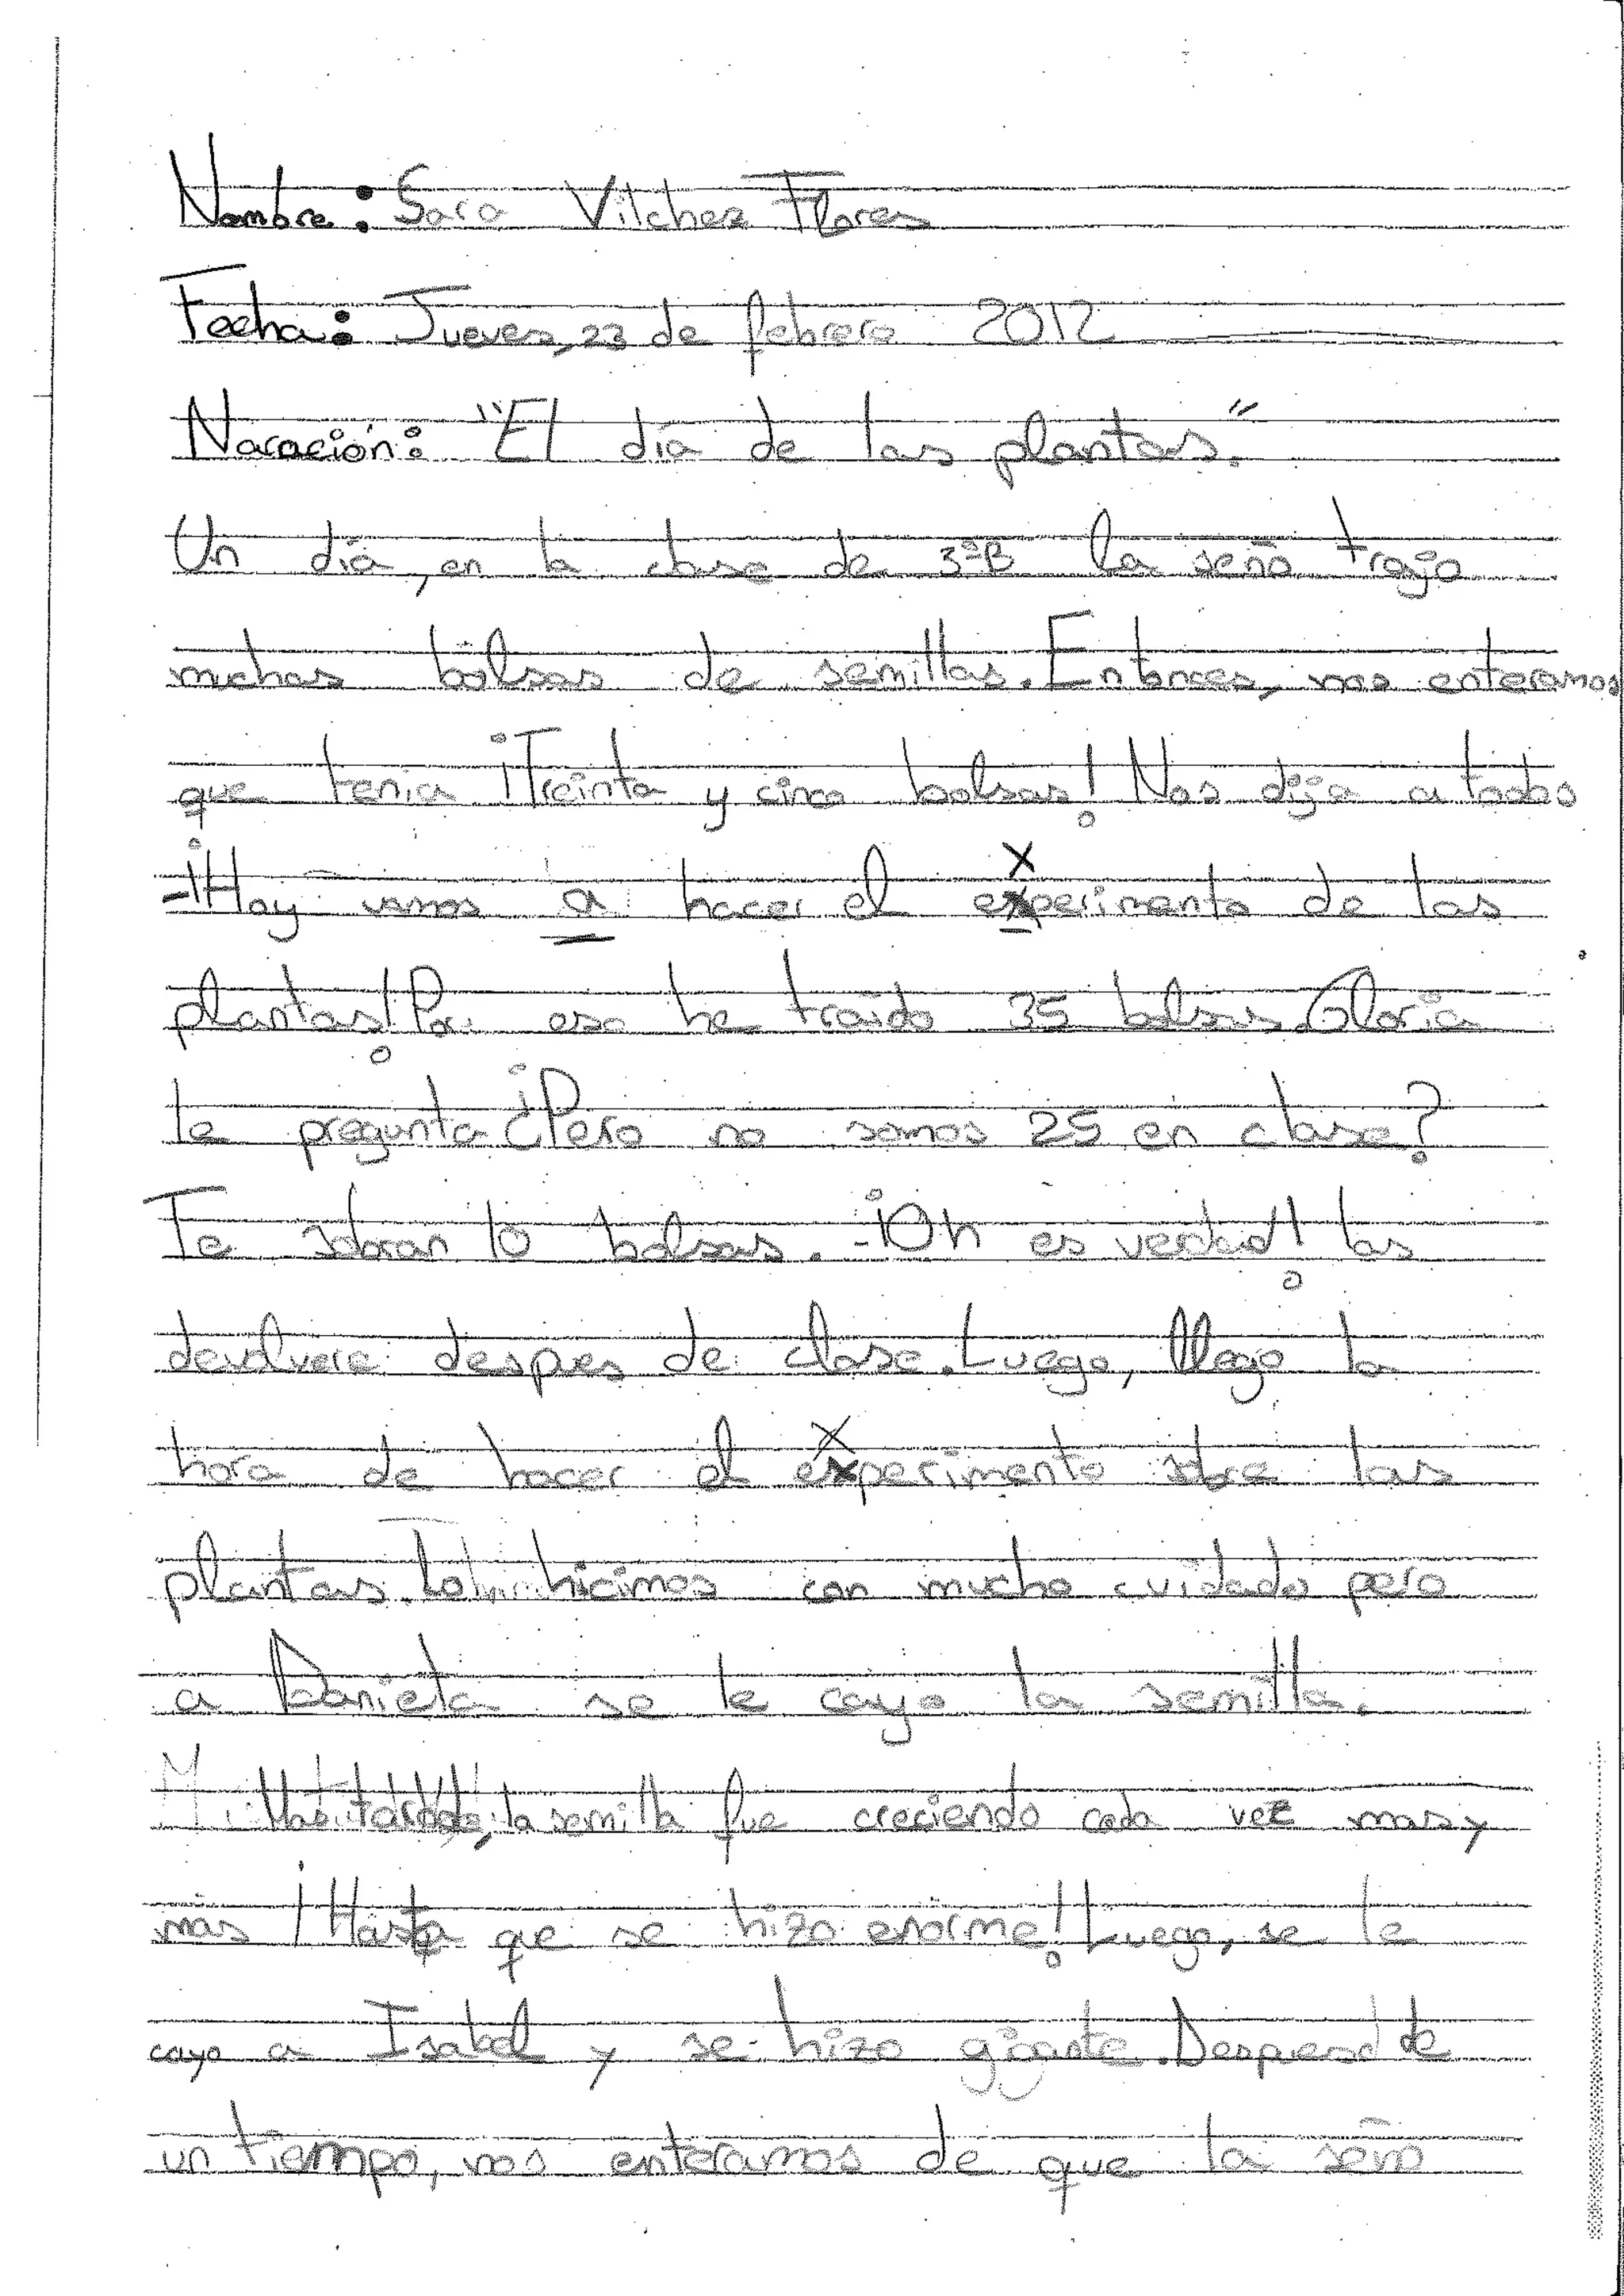 Nombre: Sara Vilchez Flores
Fecha: Jueves, 23 de febrero 2012
Naración: "El día de las plantas."
Un día, en la clase de 3ºB la seño trajo
muchas bolsas de semillas. Entonces, nos enteramos
que tenia ¡Treinta y cinco bolsas! Nos dijo a todos
-¡Hoy vamos a hacer el experimento de las
plantas! Por eso he traido 35 bolsas. Gloria
le pregunta ¿Pero no somos 25 en clase?
Te sobran 10 bolsas. -¡Oh es verdad! las
devolvere despues de clase. Luego, llego la
hora de hacer el experimento sobre las
plantas. Lo hicimos con mucho cuidado pero
a Daniela se le cayo la semilla.
Mas tarde, la semilla fue creciendo cada vez mas y
mas ¡Hasta que se hizo enorme! Luego, se le
cayo a Isabel y se hizo gigante. Despues de
un tiempo, nos enteramos de que la seño